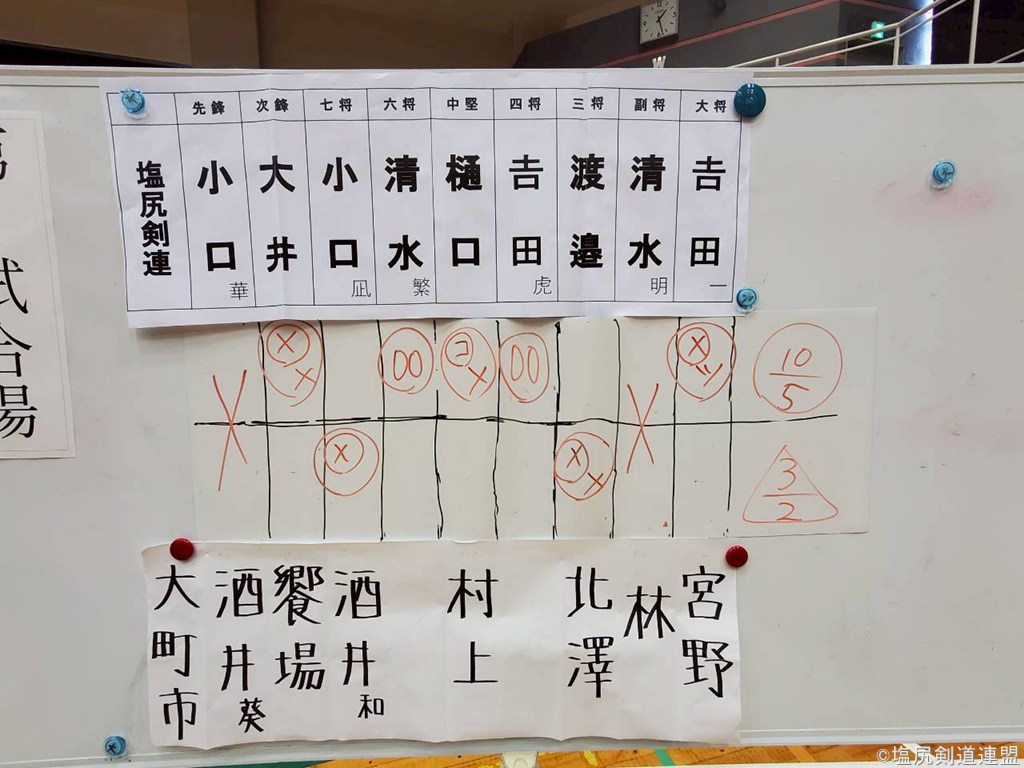 先鋒 次鋒 七将 六将 中堅 四将 三将 副将 大将
塩尻剣連 小口華 大井 小口凪 清水繁 樋口 𠮷田虎 渡邉 清水明 𠮷田一
試合場
X メ メ 00 コ メ 00 X メ
10
5
メ メ メ
3
2
大町市 酒井葵 饗場 酒井和 村上 北澤 林 宮野
©塩尻剣道連盟